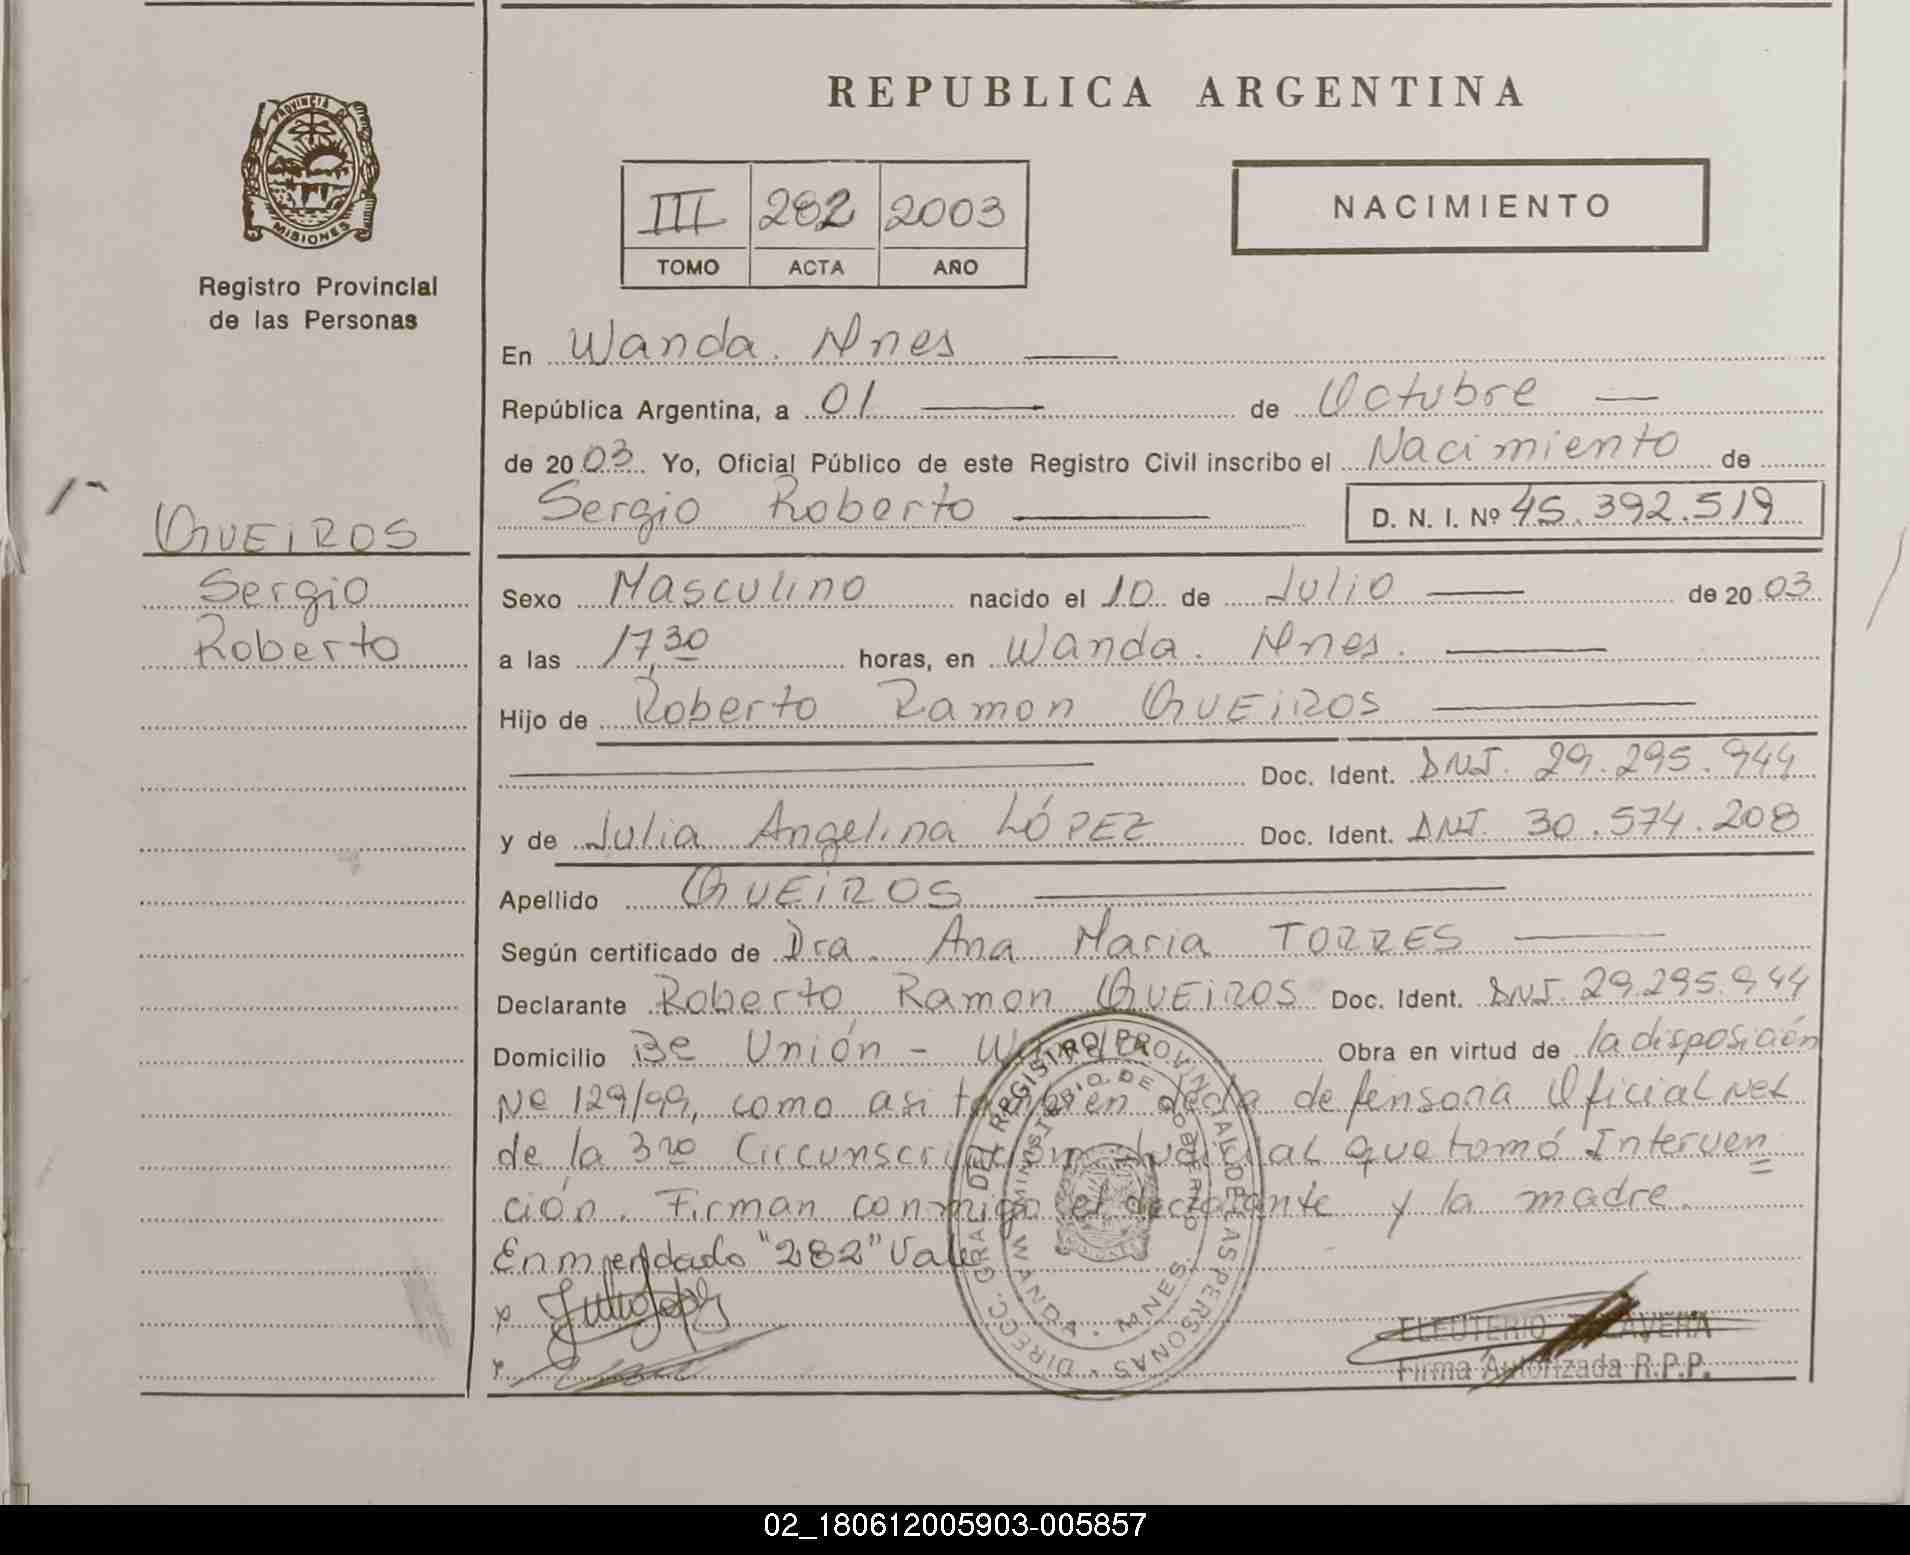 REPUBLICA ARGENTINA
PROVINCIA DE
MISIONES
Registro Provincial
de las Personas
III 282 2003
TOMO ACTA AÑO
NACIMIENTO
En Wanda. Mnes
República Argentina, a 01 de Octubre
de 2003. Yo, Oficial Público de este Registro Civil inscribo el Nacimiento de
Sergio Roberto D. N. I. Nº 45.392.519
QUEIROS
Sergio
Roberto
Sexo Masculino nacido el 10 de Julio de 2003
a las 17,30 horas, en Wanda. Mnes.
Hijo de Roberto Ramon QUEIROS
Doc. Ident. DNI. 29.295.944
y de Julia Angelina LÓPEZ Doc. Ident. DNI. 30.574.208
Apellido QUEIROS
Según certificado de Dra. Ana Maria TORRES
Declarante Roberto Ramon QUEIROS Doc. Ident. DNI. 29.295.944
Domicilio Bº Unión - Wanda Obra en virtud de la disposición
Nº 129/99, como asi también de la defensoria Oficial Nº1
de la 3ra Circunscripción Judicial que tomó Interven
ción. Firman conmigo el declarante y la madre.
Enmendado "282" Vale
DIRECC. GRAL. DEL REGISTRO PROVINCIAL DE LAS PERSONAS
MINISTERIO DE GOBIERNO
WANDA - MNES.
ELEUTERIO TALAVERA
Firma Autorizada R.P.P.
02_180612005903-005857